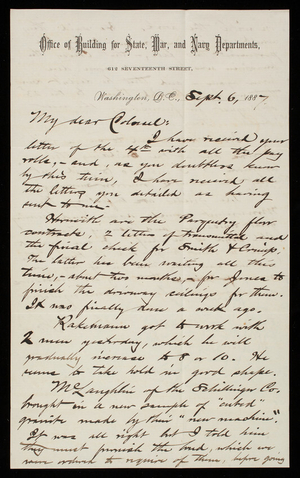 Office of Building for State, War, and Navy Departments,
612 SEVENTEENTH STREET,
Washington, D.C., Sept. 6, 1887
My dear Colonel:
I have received your
letter of the 4th with all the pay
rolls, - and, as you doubtless know
by this time, I have received all
the letters you detailed as having
sent to me.
Herewith are the Parquetry floor
contracts; 2 letters of transmittal and
the final check for Smith & Crimp.
The latter has been waiting all this
time, about two months, - for Jones to
finish the doorway ceilings for them.
It was finally done a week ago.
Kakemann got to work with
2 men yesterday, which he will
gradually increase to 8 or 10. He
seems to take hold in good shape.
McLaughlin of the Schillinger Co.
brought in a new sample of "cubed"
granite made by their "new machine."
It was all right but I told him
they must furnish the bond, which we
were ordered to require of them, before going